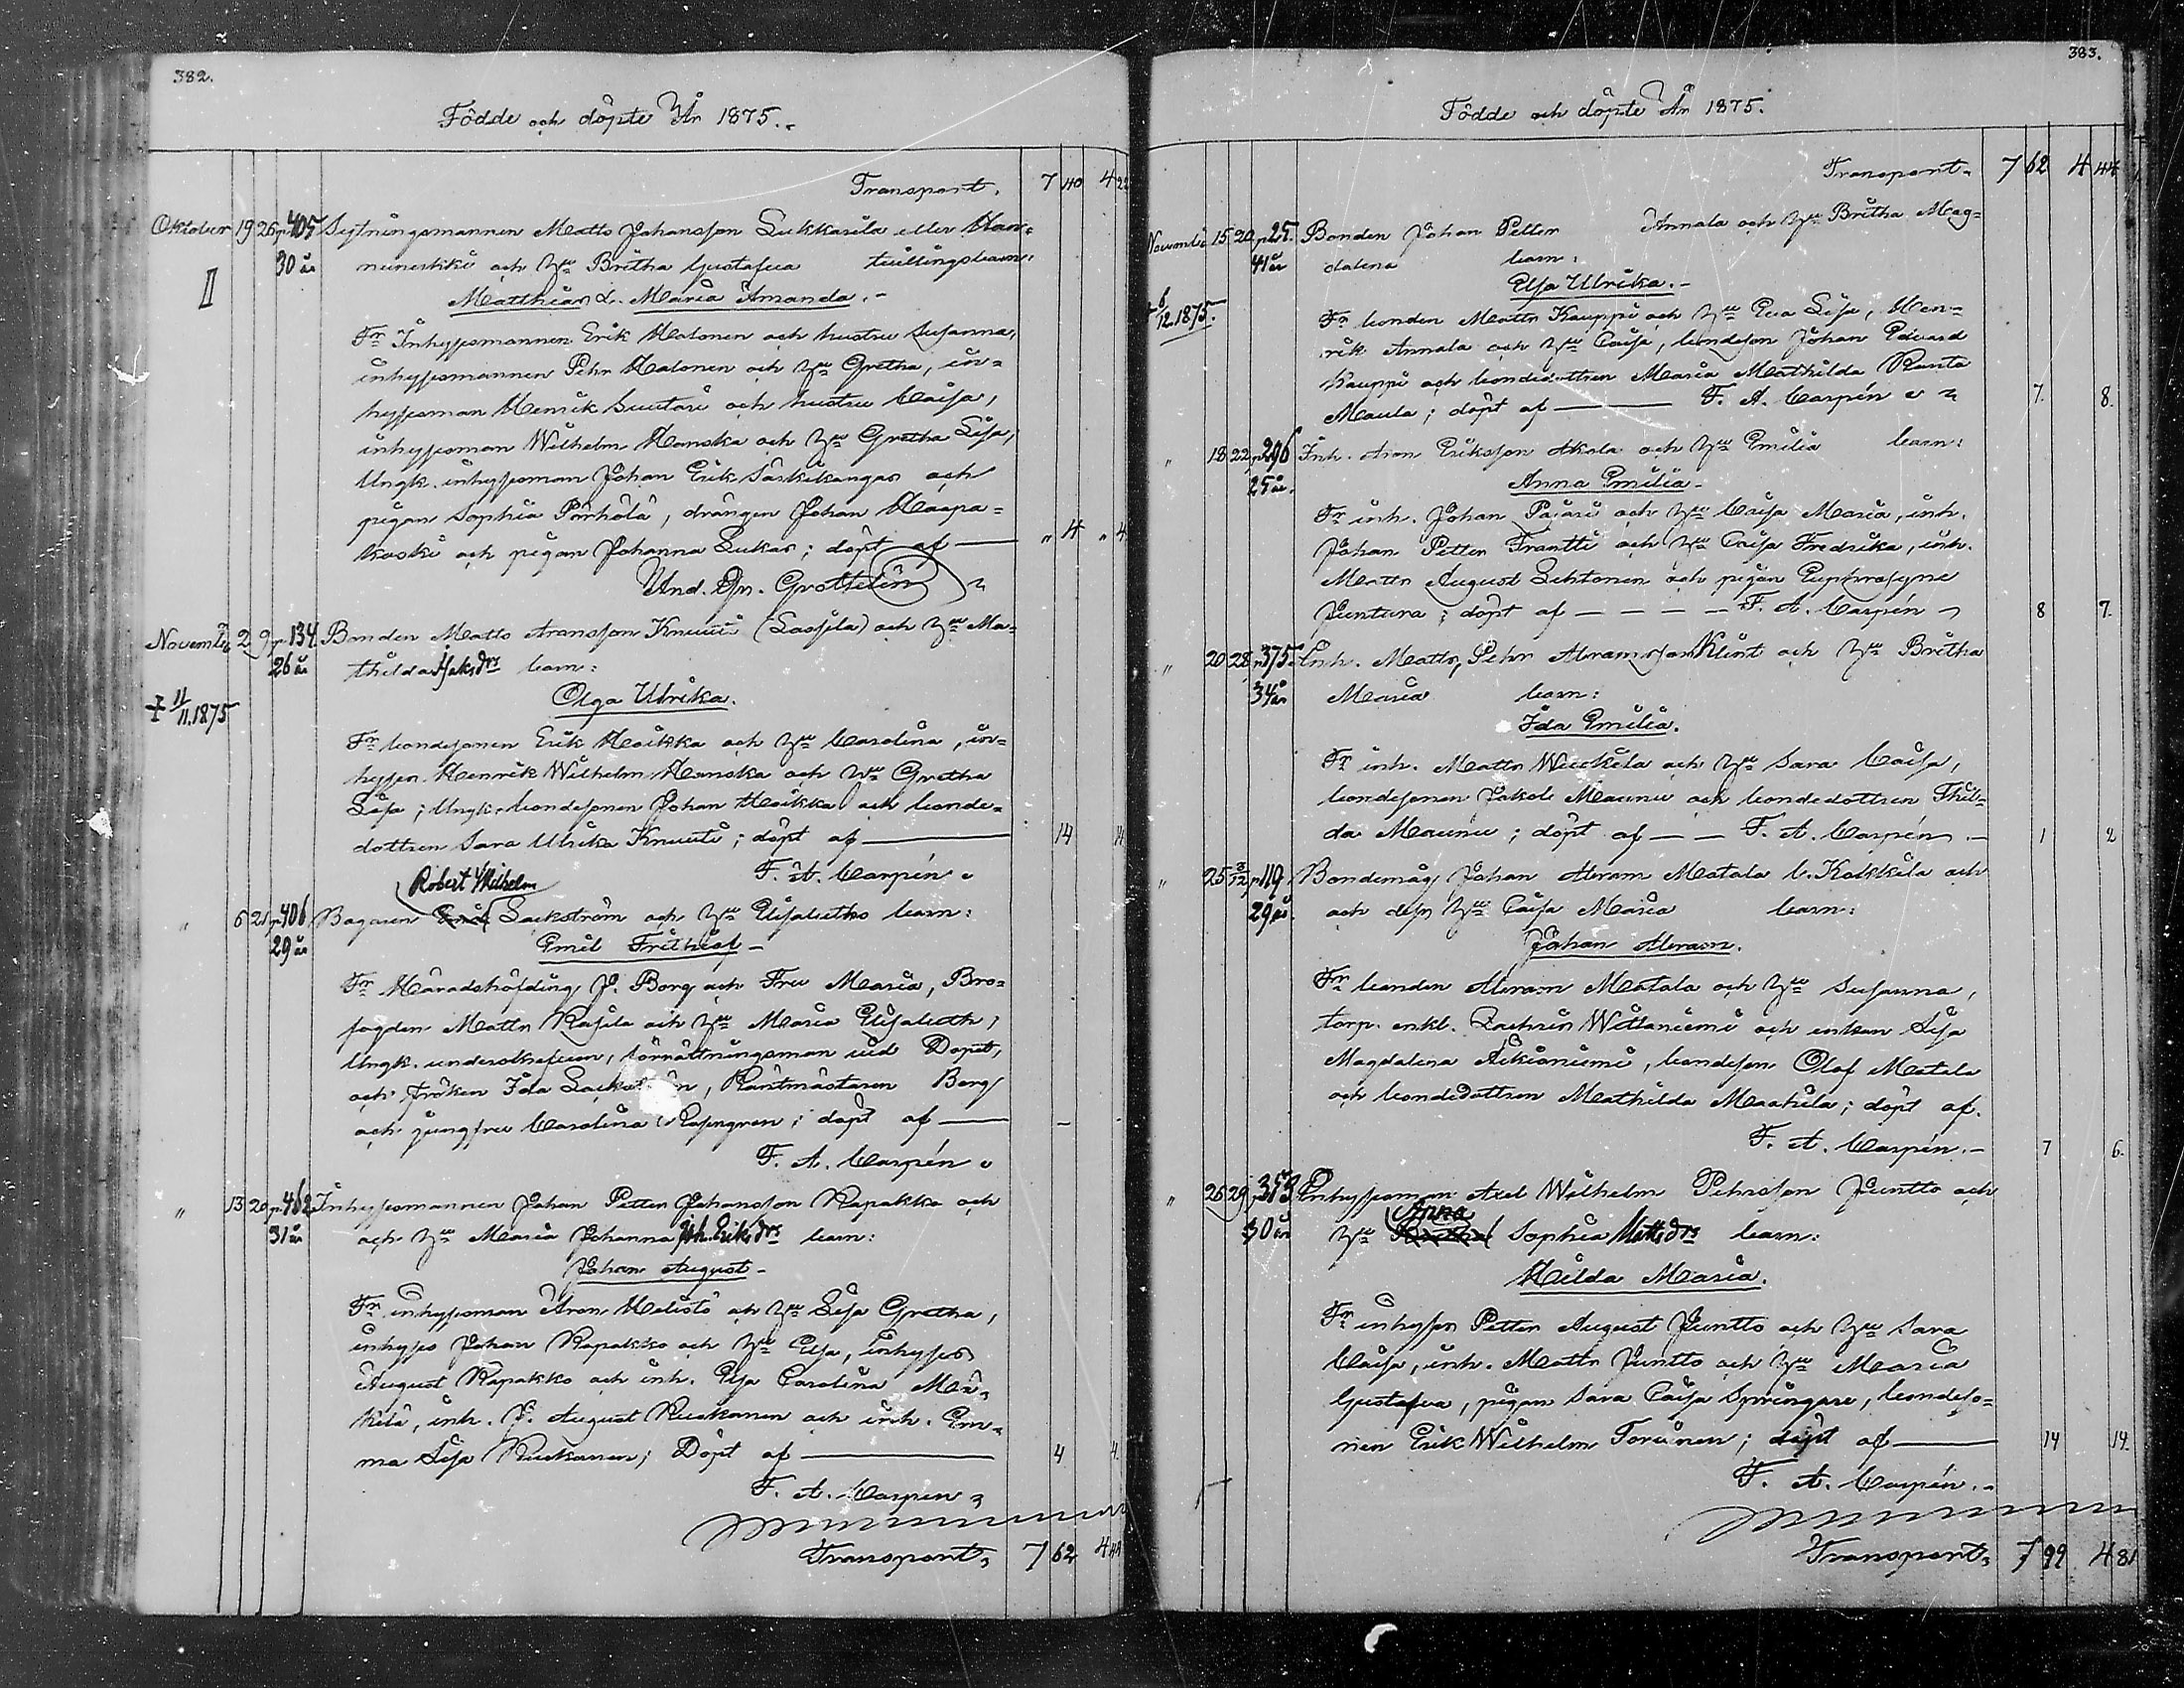 382.
Födde och döpte År 1875.
Transport. 7 40 4 22
Oktober 19 26 p. 405 Sytningsmannen Matts Johansson Lukkarila eller Han=
30 år nuneskki och Hu Britha Gustafva tvillingsbarn:
II
Matthias & Maria Amanda.
Fr Inhysesmannen Erik Halonen och hustru Susanna,
inhysesmannen Pehr Halonen och Hu Gretha, in=
hysesman Henrik Suutari och hustru Caisa,
inhysesman Wilhelm Hanska och Hu Gretha Lisa,
Ungk. inhysesman Johan Erik Särkikangas och
pigan Sophia Pörhölä, drängen Johan Haapa=
koski och pigan Johanna Lukas; döpt af — " 4 " 4
And. Gr. Grottelin
November 2 9 p. 134. Bonden Matts Aronsson Knuuti (Lassila) och Hu Ma=
26 år thilda Isaksdr barn:
Olga Ulrika.
+ 11/11.1875
Fr bondesonen Erik Heikka och Hu Carolina, in=
hysen Henrik Wilhelm Hanska och Hu Gretha
Lisa; Ungk. bondesonen Johan Heikka och bonde=
dottren Sara Ulrika Knuuti; döpt af — 14 14
F. A. Carpén
Robert Wilhelm
" 6 21 p. 406 Bagaren Erik Sackström och Hu Elisabeths barn:
29 år
Emil Frithiof
Fr Häradshöfding J. Borg och Fru Maria, Bro=
fogden Matts Rasila och Hu Maria Elisabeth,
Ungk. förrättningsman vid Dopet,
och fröken Ida, Räntmästaren Berg
och jungfru Carolina Rosengren; döpt af — - -
F. A. Carpén
" 13 20 p. 462 Inhysesmannen Johan Petter Johansson Rapakko och
31 år och Hu Maria Johanna Joh. Eriksdr barn:
Johan August
Fr inhysesman Aron Melistö och Hu Lisa Gretha,
inhyses Johan Rapakko och Hu Elsa, inhyses
August Rapakko och inh. Elsa Carolina Mä=
kilä, inh. J. August Ruokanen och inh. Em=
ma Lisa Ruokanen; Döpt af — 4 4
F. A. Carpén
Transport, 7 62 4 44
383.
Födde och döpte År 1875.
Transport. 7 62 4 44
November 15 20 p. 25. Bonden Johan Petter Annala och Hu Britha Mag=
41 år dalena barn:
Elsa Ulrika.
+ 6/12.1875.
Fr bonden Matts Kauppi och Hu Eva Lisa, Hen=
rik Annala och Hu Caisa, bondeson Johan Edvard
Kauppi och bondedottren Maria Mathilda Ranta
Maula; döpt af — F. A. Carpén 7. 8.
" 18 22 p. 296 Inh. Aron Eriksson Akola och Hu Emilia barn:
25 år.
Anna Emilia
Fr inh. Johan Pajari och Hu Caisa Maria, inh.
Johan Petter Frantti och Hu Caisa Fredrika, inh.
Matts August Lehtonen och pigan Euphrosyne
Juntura; döpt af — — — — F. A. Carpén 8 7.
" 20 28 p. 375 Inh. Matts Pehr Abramsson Klint och Hu Britha
34 år Maria barn:
Ida Emilia.
Fr inh. Matts Wuokila och Hu Sara Caisa,
bondesonen Jakob Maunu och bondedottren Thil=
da Maunu; döpt af — — F. A. Carpén 1 2
" 25 3/12 p. 119. Bondemåg Johan Abram Matala l. Kokkila och
29 år. och dess Hu Caisa Maria barn:
Johan Abram.
Fr bonden Abram Matala och Hu Susanna,
torp. enkl. Zachris Wittaniemi och enkan Lisa
Magdalena Äikioniemi, bondeson Olof Matala
och bondedottren Mathilda Markila; döpt af.
F. A. Carpén. 7 6.
" 26 29 p. 373 Inhysesman Axel Wilhelm Pehrsson Juntto och
Anna
30 år Hu Britha Sophia Mattsdr barn:
Hilda Maria.
Fr inhyses Petter August Juntto och Hu Sara
Caisa, inh. Matts Juntto och Hu Maria
Gustafva, pigan Sara Caisa Springare, bondeso=
nen Erik Wilhelm Torvinen; döpt af — 14 14
F. A. Carpén.
Transport, 7 99 4 81